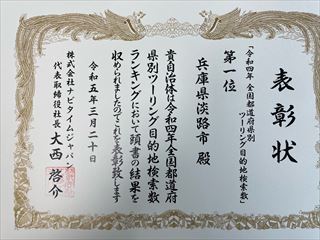 表彰状
「令和四年 全国都道府県別
ツーリング目的地検索数」
第一位
兵庫県淡路市 殿
貴自治体は令和四年全国都道府
県別ツーリング目的地検索数
ランキングにおいて頭書の結果を
収められましたのでこれを表彰致します
令和五年三月二十日
株式会社ナビタイムジャパン
代表取締役社長 大西 啓介